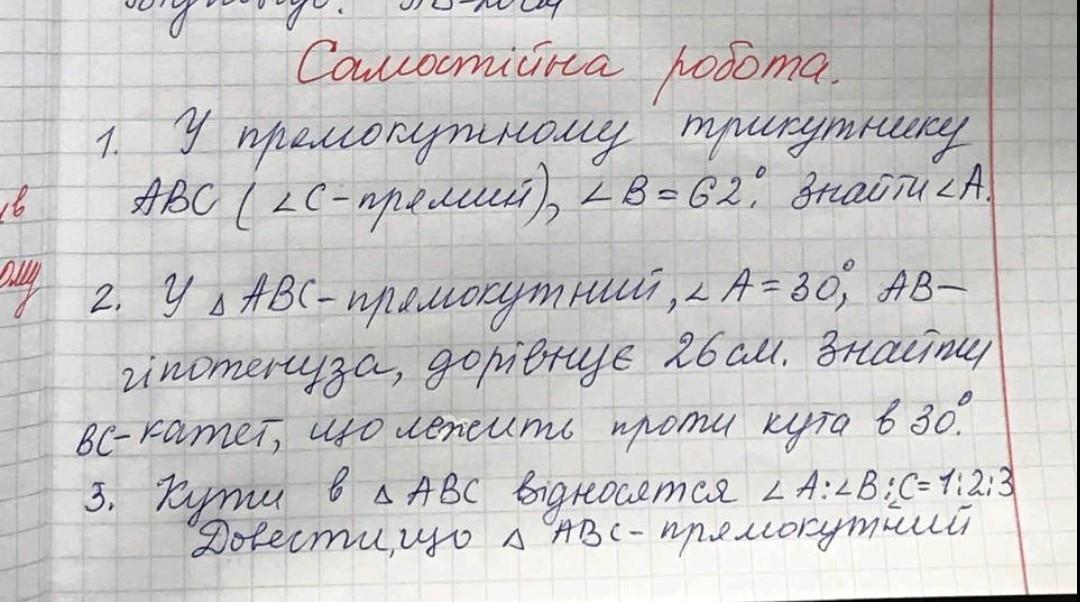 Самостійна робота.
1. У прямокутному трикутнику
ABC (∠C-прямий), ∠B=62°. Знайти ∠A.
2. У △ABC-прямокутний, ∠A=30°, AB-
гіпотенуза, дорівнує 26см. Знайти
BC-катет, що лежить проти кута в 30°.
3. Кути в △ABC відносятся ∠A:∠B:∠C=1:2:3
Довести, що △ ABC-прямокутний